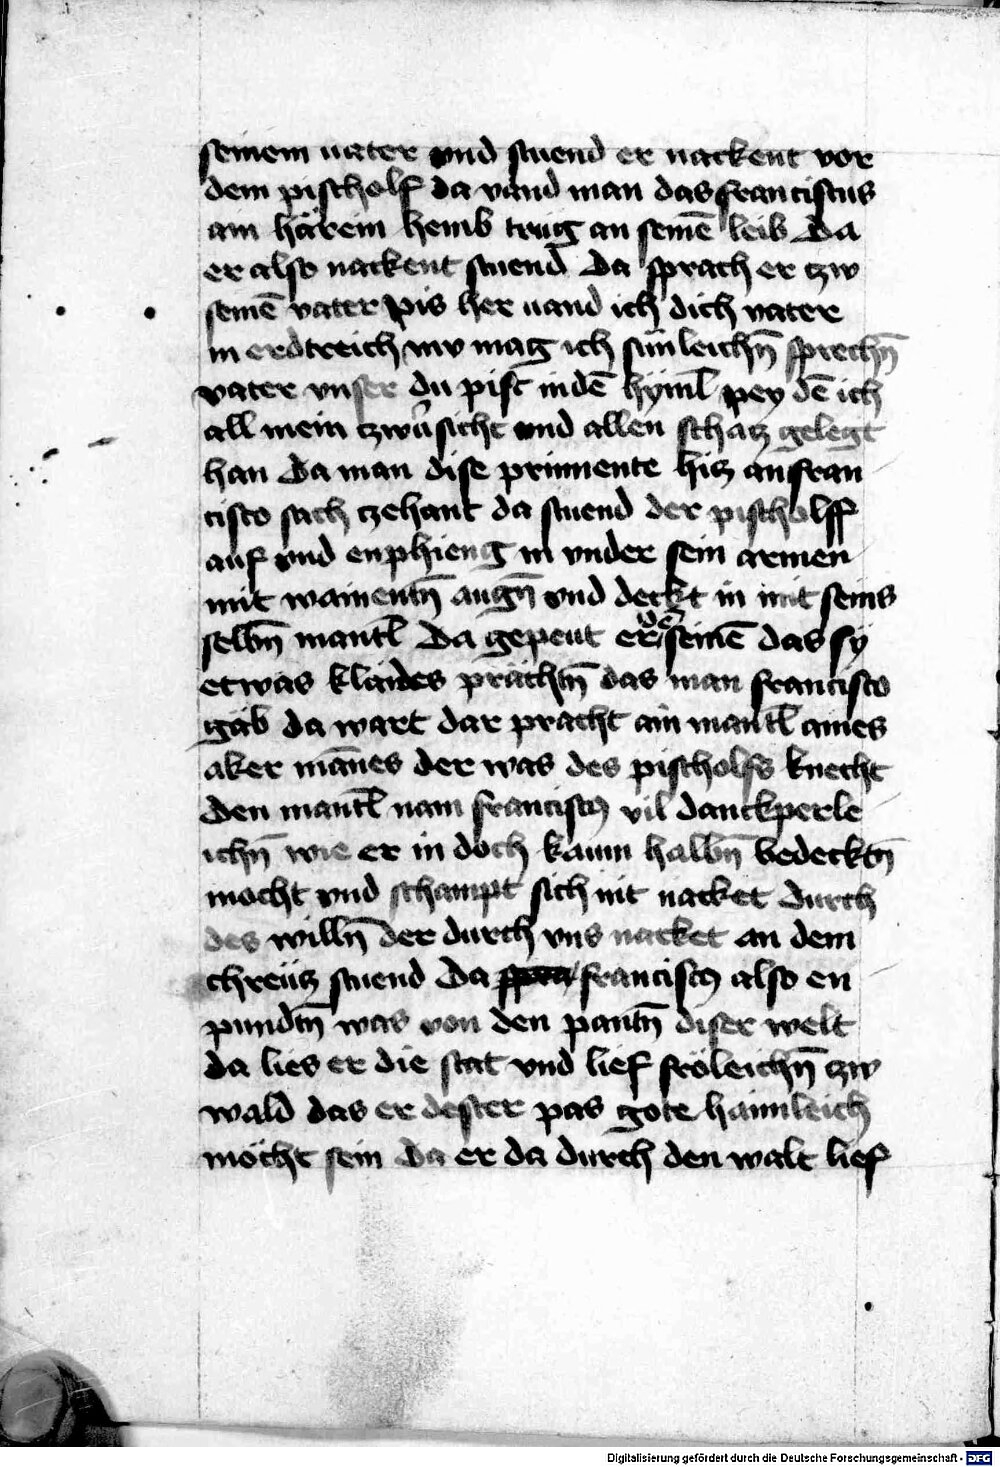 seinem uater vnd stuend er nackent vor
dem pischolf da vand man das franciscus
ain härein hemb trug an seinē leib Da
er also nackent stuend Da sprach er tzw
seinē vater pis her uand ich dich vater
in erdtreich nw mag ich sünleichn̄ sprechn̄
vater vnser du pist indē hyml pey dē ich
all mein tzwůsicht vnd allen schatz gelegt
han Da man dise prinnente hitz an fran
cisco sach tzehant da stuend der pischolff
auf vnd enphieng in vnder sein armen
mit wainentn̄ augn̄ vnd deckt in mit seins
selbn̄ mantl Da gepeut er de seinē das sy
etwas klaides prächtn̄ das man francisco
gäb da wart dar pracht ain mantl aines
aker mānes der was des pischolfs knecht
Den mantl nam franciscꝰ vil danckperle
ichn̄ wie er in doch kaum halbn̄ bedecktn̄
mocht vnd schampt sich nit nacket durch
des willn̄ der durch vns nacket an dem
chreütz stuend Da franciscꝰ also en
pundtn̄ was von den pantn̄ diser welt
da lies er die stat vnd lief fröleichn̄ tzw
wald das er dester pas gote haimleich
möcht sein Da er da durch den walt lief
Digitalisierung gefördert durch die Deutsche Forschungsgemeinschaft - DFG